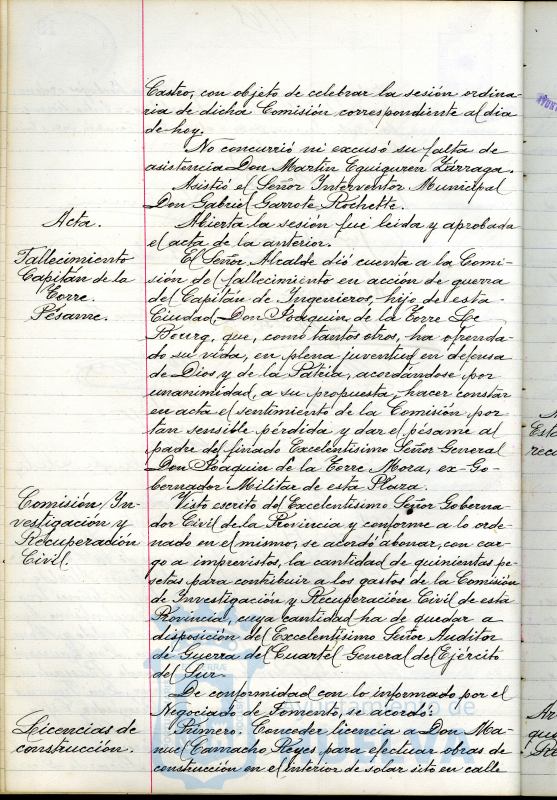 Castro, con objeto de celebrar la sesión ordina-
ria de dicha Comisión correspondiente al dia
de hoy.
No concurrió ni excusó su falta de
asistencia Don Martin Eguiguren Zárraga.
Asistió el Señor Interventor Municipal
Don Gabriel Garrote Rochette.
Acta.
Abierta la sesión fué leida y aprobada
el acta de la anterior.
Fallecimiento
Capitán de la
Torre.
Pésame.
El Señor Alcalde dió cuenta a la Comi-
sión de fallecimiento en acción de guerra
del Capitán de Ingenieros, hijo de esta
Ciudad, Don Joaquin de la Torre Le
Bourg, que, como tantos otros, ha ofrenda-
do su vida, en plena juventud en defensa
de Dios y de la Patria, acordándose por
unanimidad, a su propuesta, hacer constar
en acta el sentimiento de la Comisión por
tan sensible pérdida y dar el pésame al
padre del finado Excelentisimo Señor General
Don Joaquin de la Torre Mora, ex-Go-
bernador Militar de esta Plaza.
Comisión, In-
vestigación y
Recuperación
Civil.
Visto escrito del Excelentisimo Señor Goberna-
dor Civil de la Provincia y conforme a lo orde-
nado en el mismo, se acordó abonar, con car-
go a imprevistos, la cantidad de quinientas pe-
setas para contribuir a los gastos de la Comisión
de Investigación y Recuperación Civil de esta
Provincia, cuya cantidad ha de quedar a
disposición del Excelentisimo Señor Auditor
de Guerra del Cuartel General del Ejército
del Sur.
De conformidad con lo informado por el
Negociado de Fomento, se acordó:
Licencias de
construcción.
Primero. Conceder licencia a Don Ma-
nuel Camacho Reyes para efectuar obras de
construcción en el interior de solar sito en calle
Ayuntamiento de
HUELVA